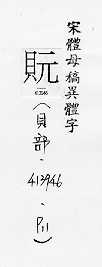 宋體母稿異體字
貦(貝部．413946．P.11)